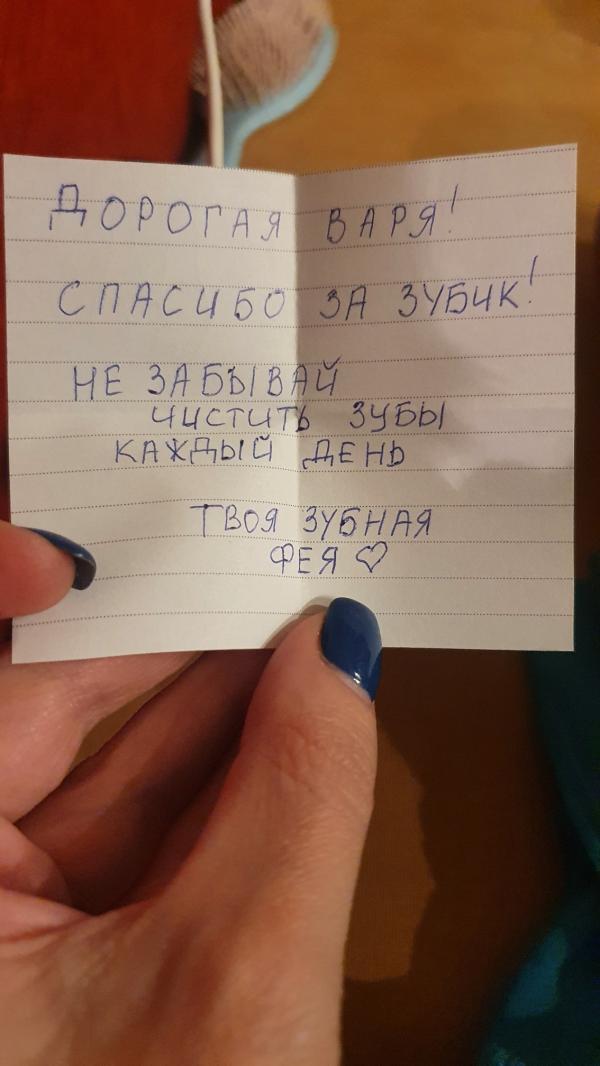 ДОРОГАЯ ВАРЯ!
СПАСИБО ЗА ЗУБИК!
НЕ ЗАБЫВАЙ
ЧИСТИТЬ ЗУБЫ
КАЖДЫЙ ДЕНЬ
ТВОЯ ЗУБНАЯ
ФЕЯ ♡